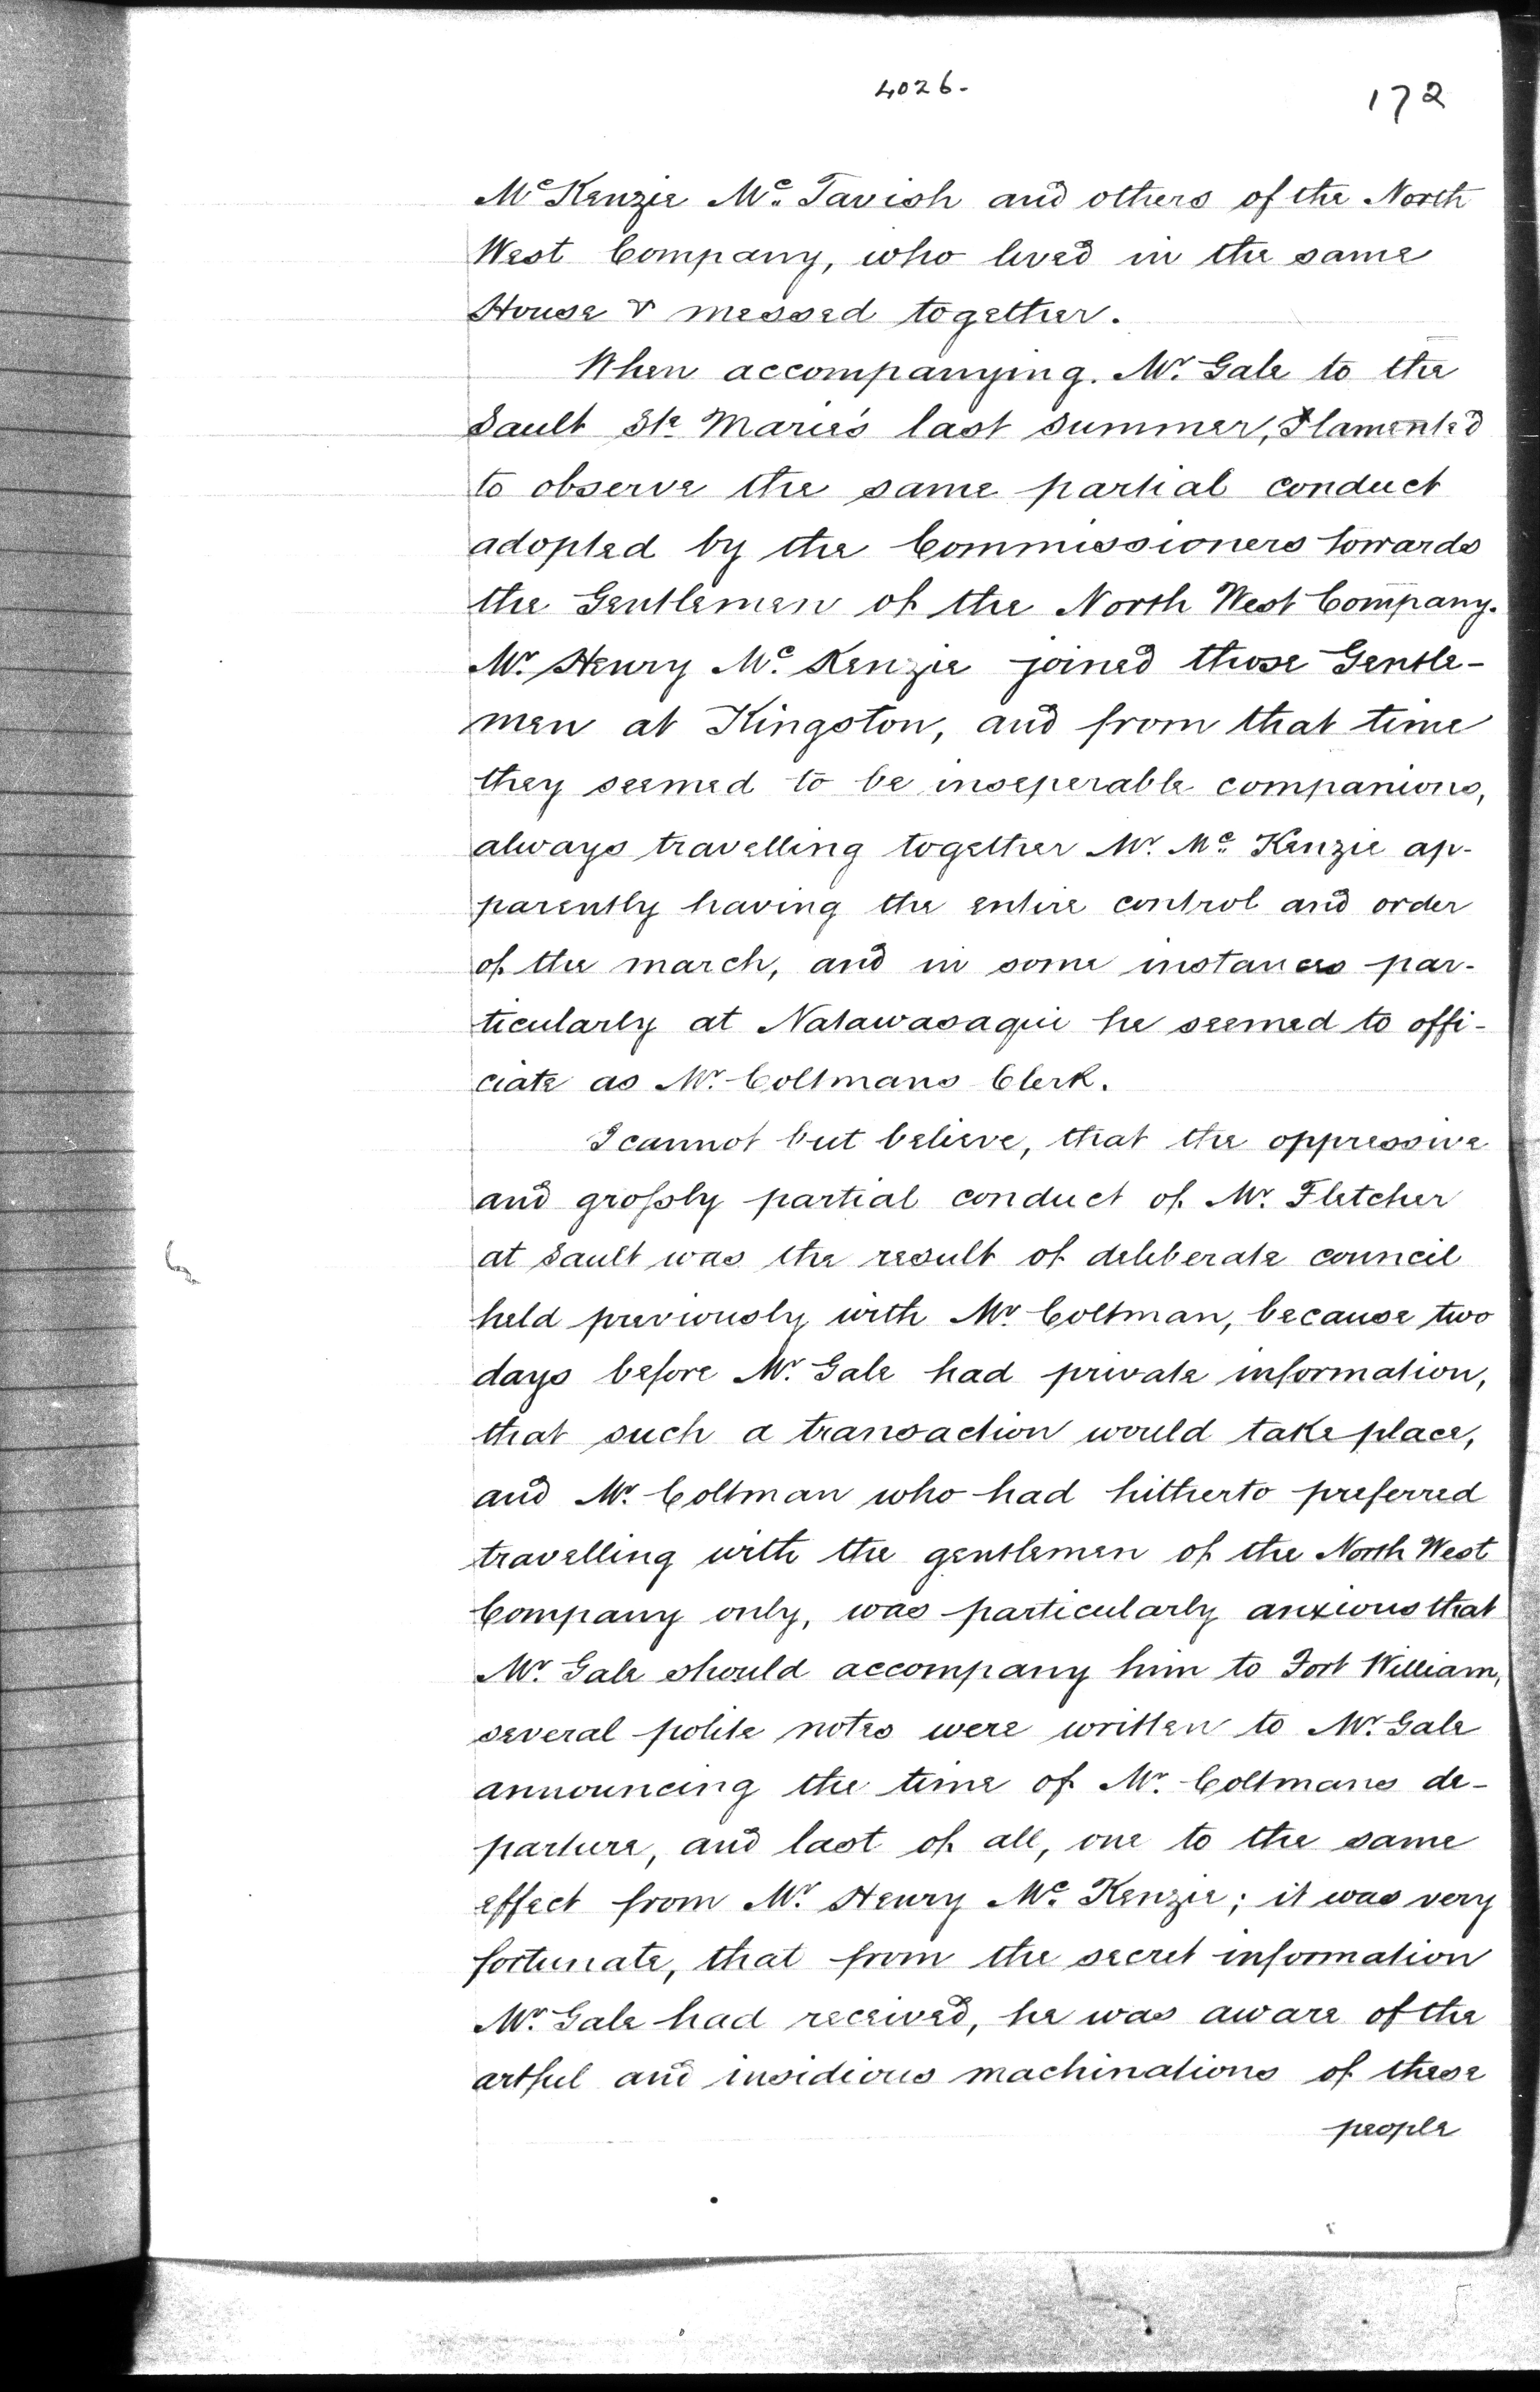 4026.
172
Mc Kenzie Mc. Tavish and others of the North
West Company, who lived in the same
House & messed together.
When accompanying. Mr. Gale to the
Sault Ste Marie's last summer, I lamented
to observe the same partial conduct
adopted by the Commissioners towards
the Gentlemen of the North West Company.
Mr. Henry Mc. Kenzie joined those Gentle-
men at Kingston, and from that time
they seemed to be inseperable companions,
always travelling together Mr. Mc. Kenzie ap-
parently having the entire control and order
of the march, and in some instances par-
ticularly at Natawasaqui he seemed to offi-
ciate as Mr. Coltmans Clerk.
I cannot but believe, that the oppressive
and grossly partial conduct of Mr. Fletcher
at Sault was the result of deliberate council
held previously with Mr. Coltman, because two
days before Mr. Gale had private information,
that such a transaction would take place,
and Mr. Coltman who had hitherto preferred
travelling with the gentlemen of the North West
Company only, was particularly anxious that
Mr. Gale should accompany him to Fort William,
several polite notes were written to Mr. Gale
announcing the time of Mr. Coltmans de-
parture, and last of all, one to the same
effect from Mr. Henry Mc. Kenzie; it was very
fortunate, that from the secret information
Mr. Gale had received, he was aware of the
artful and insidious machinations of these
people